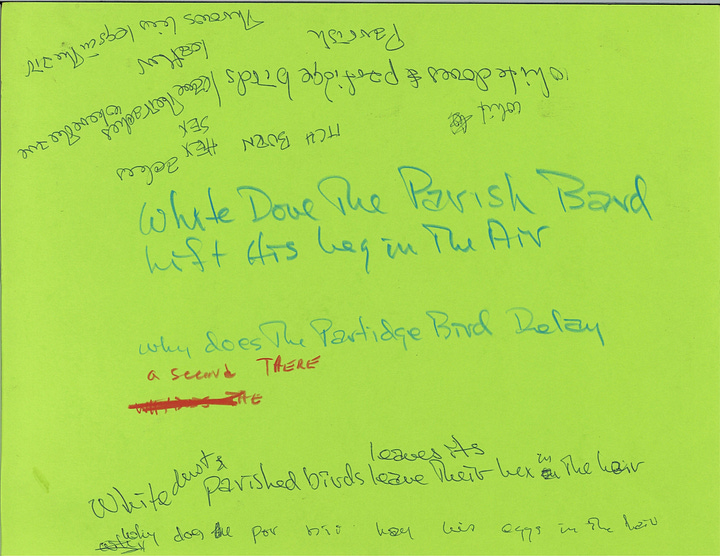 Throws his legs in the air
Parish
leather
white doves & partidge birds leave their aches where there are
whit
SEX
ITCH BURN HEX
White Dove The Parish Bard
Lift His Leg in The Air
why does The Partidge Bird Delay
a second THERE
White dust &
leaves its
parished birds leave Their hex in The hair
why does the por bird lay his eggs in the hair